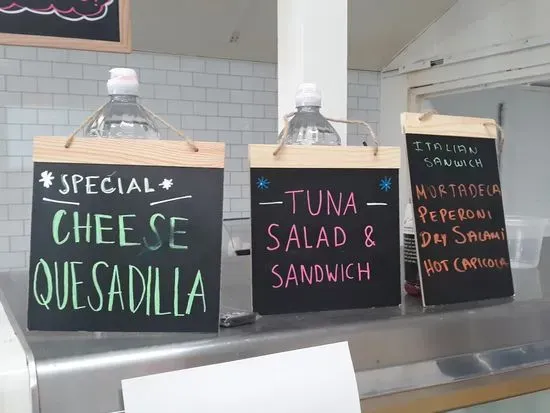 * SPECIAL *
CHEESE
QUESADILLA
TUNA
SALAD &
SANDWICH
ITALIAN
SANWICH
MORTADECA
PEPERONI
DRY SALAMI
HOT CAPICOLA